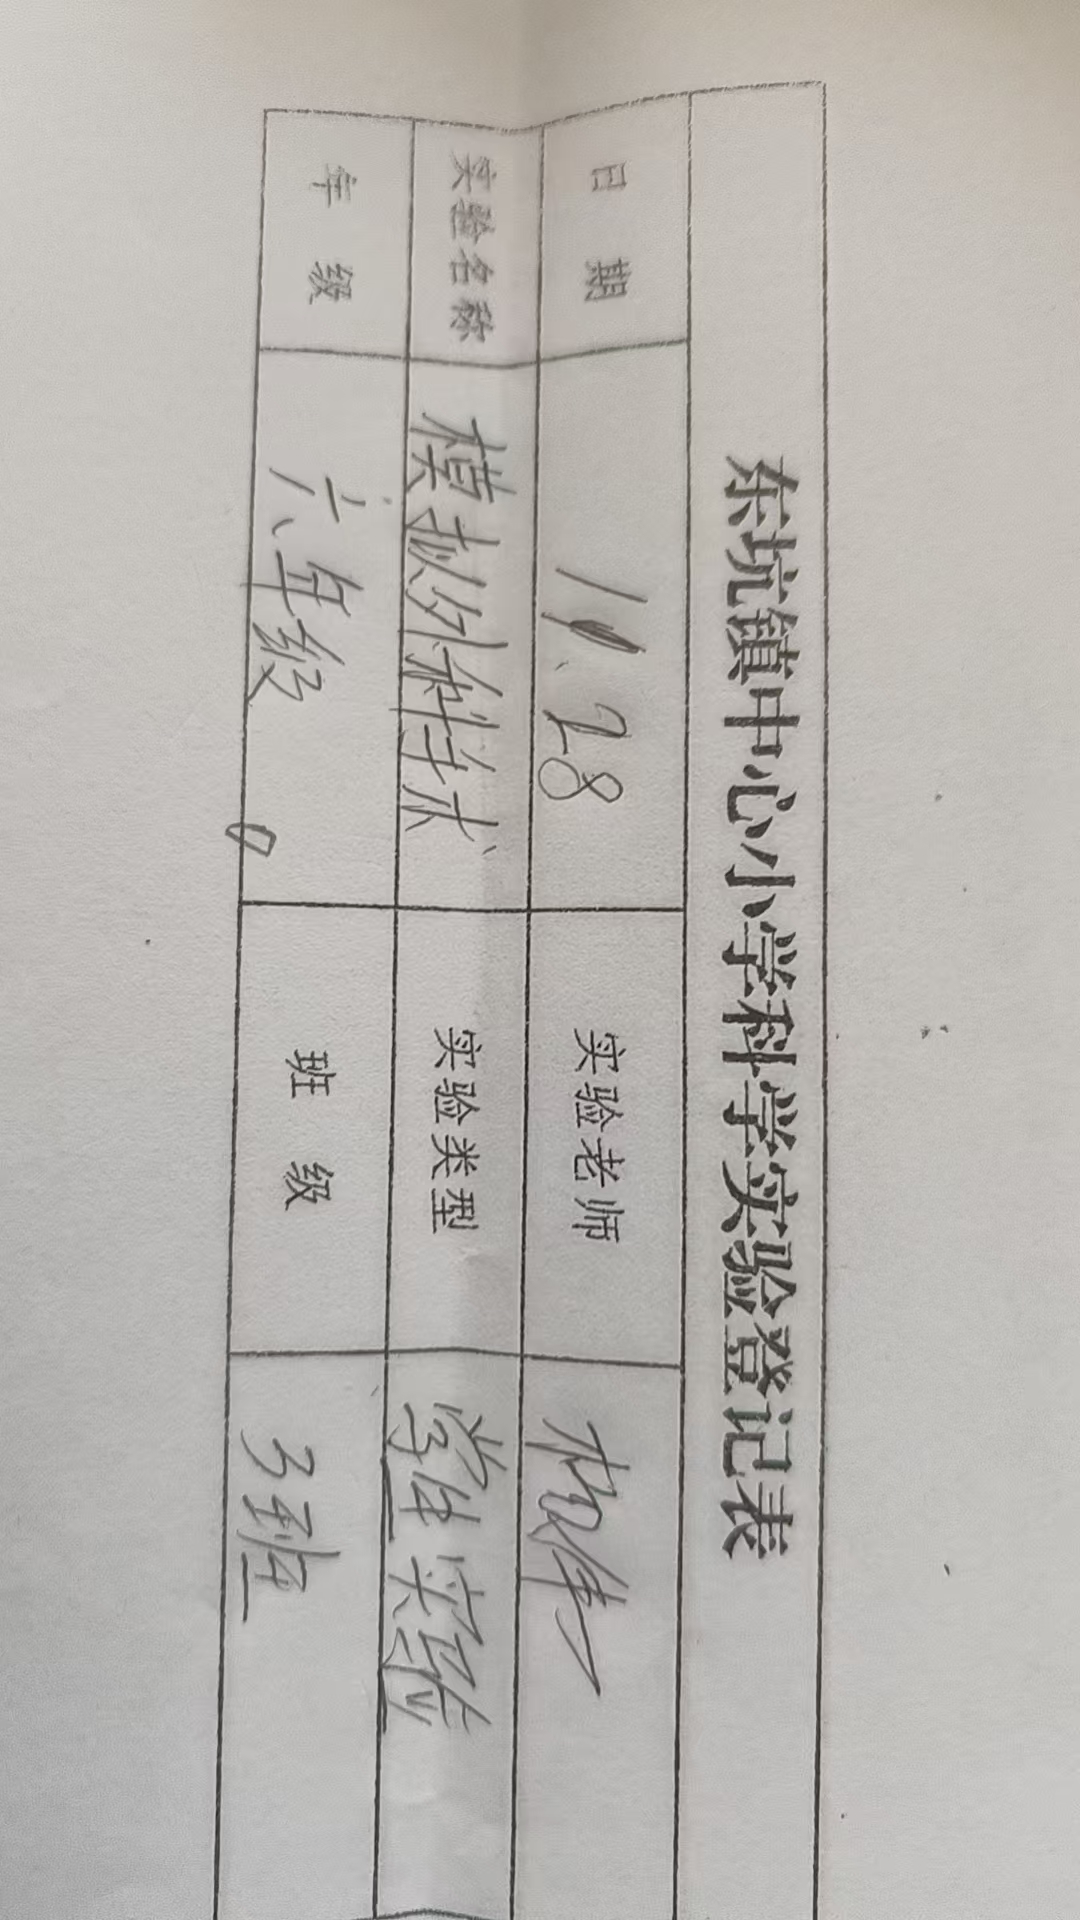 东坑镇中心小学科学实验登记表
日 期 11.28 实验老师
实验名称 模拟外科手术 实验类型 学生实验
年 级 六年级 班 级 3班